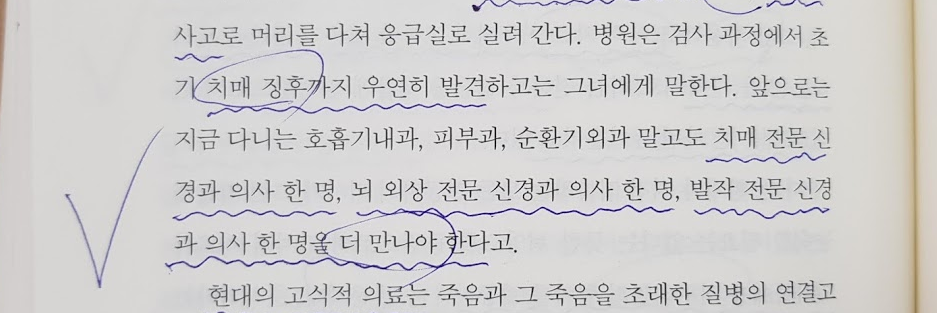 사고로 머리를 다쳐 응급실로 실려 간다. 병원은 검사 과정에서 초
기 치매 징후까지 우연히 발견하고는 그녀에게 말한다. 앞으로는
지금 다니는 호흡기내과, 피부과, 순환기외과 말고도 치매 전문 신
경과 의사 한 명, 뇌 외상 전문 신경과 의사 한 명, 발작 전문 신경
과 의사 한 명을 더 만나야 한다고.
현대의 고식적 의료는 죽음과 그 죽음을 초래한 질병의 연결고